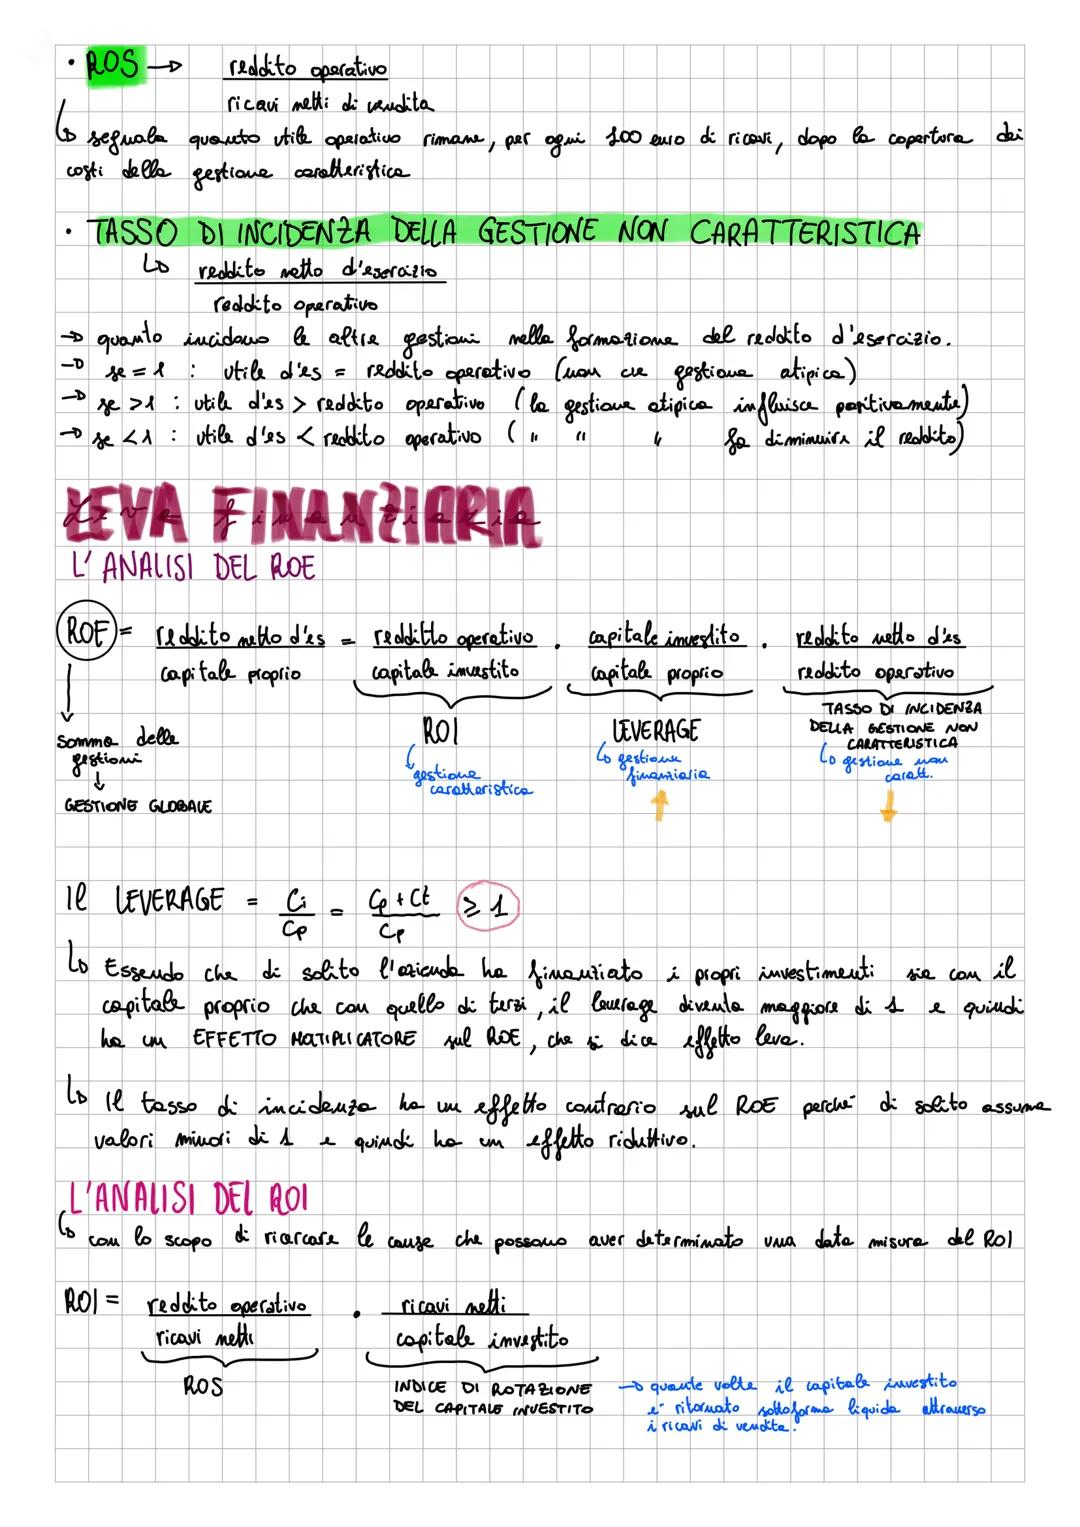 • ROS → reddito operativo
ricavi netti di vendita
↳ segnala quanto utile operativo rimane, per ogni 100 euro di ricavi, dopo la copertura dei
costi della gestione caratteristica
• TASSO DI INCIDENZA DELLA GESTIONE NON CARATTERISTICA
↳ reddito netto d'esercizio
reddito operativo
→ quanto incidono le altre gestioni nella formazione del reddito d'esercizio.
→ se = 1 : utile d'es = reddito operativo (non c'è gestione atipica)
→ se >1 : utile d'es > reddito operativo (la gestione atipica influisce positivamente)
→ se <1 : utile d'es < reddito operativo ( " " " fa diminuire il reddito)
LEVA FINANZIARIA
Leva finanziaria
L'ANALISI DEL ROE
ROE = reddito netto d'es = redditto operativo . capitale investito . reddito netto d'es
capitale proprio capitale investito capitale proprio reddito operativo
somma delle
gestioni
↓
GESTIONE GLOBALE
ROI
↳ gestione
caratteristica
LEVERAGE
↳ gestione
finanziaria
TASSO DI INCIDENZA
DELLA GESTIONE NON
CARATTERISTICA
↳ gestione non
caratt.
Il LEVERAGE = Ci = Cp + Ct ≥ 1
Cp Cp
↳ Essendo che di solito l'azienda ha finanziato i propri investimenti sia con il
capitale proprio che con quello di terzi, il leverage diventa maggiore di 1 e quindi
ha un EFFETTO MOLTIPLICATORE sul ROE, che si dice effetto leva.
↳ Il tasso di incidenza ha un effetto contrario sul ROE perché di solito assume
valori minori di 1 e quindi ha un effetto riduttivo.
L'ANALISI DEL ROI
↳ con lo scopo di ricercare le cause che possono aver determinato una data misura del ROI
ROI = reddito operativo . ricavi netti
ricavi netti capitale investito
ROS
INDICE DI ROTAZIONE
DEL CAPITALE INVESTITO
→ quante volte il capitale investito
e' ritornato sottoforma liquida attraverso
i ricavi di vendita.